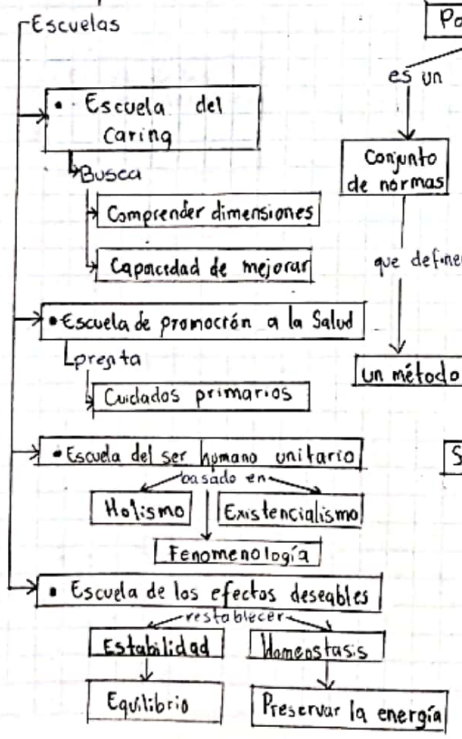 Escuelas
• Escuela del
Caring
Busca
Comprender dimensiones
Capacidad de mejorar
• Escuela de promoción a la Salud
Cuidados primarios
• Escuela del ser humano unitario
basado en
Holismo
Existencialismo
Fenomenología
• Escuela de los efectos deseables
restablecer
Estabilidad
Homeostasis
Equilibrio
Preservar la energía
es un
Conjunto
de normas
que define
un método